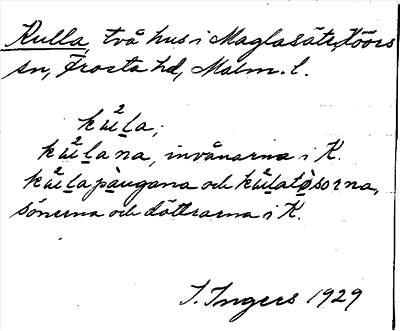 Kulla, två hus i Maglasäte, Höörs
sn, Frosta hd, Malm. l.
kü²la;
kü²lana, invånarna i K.
kü²lapàugana och kü²latø̀sorna,
sönerna och döttrarna i K.
I. Ingers 1929